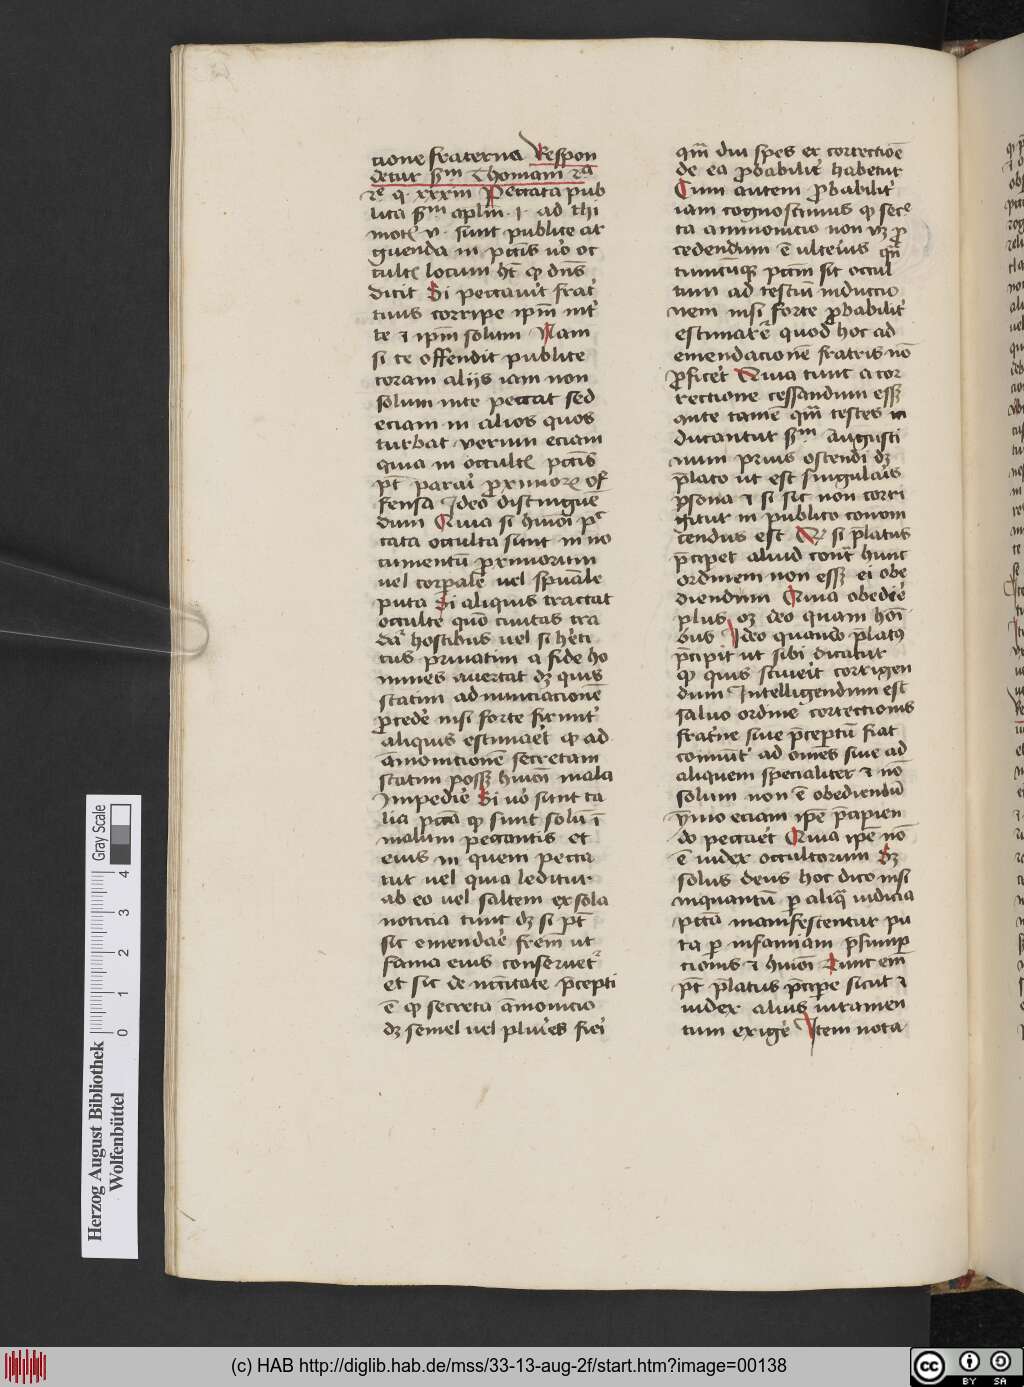 cione fraterna Respon
detur s̄m Thomam 2a
2e q xxxiii Peccata pub
lica s̄m aplm̄ · i · ad thi
mot v · sunt publice ar
guenda in pctīs v̊o oc
cult locum ht̄ qp dn̄s
dicit Si peccavit frat
tuus corripe ip̄m int
te ⁊ ip̄m solum Nam
si te offendit publice
coram aliis iam non
solum in te peccat sed
eciam in alios quos
turbat verum eciam
quia in occult pctīs
pt̄ parari proximor of
fensa Ideo distingue
dum Quia si hmōi pc
cata occulta sunt in no
cumentū proximorum
vel corpale vel spūale
puta Si aliquis tractat
occulte quō civitas tra
dat hostibus vel si heti
cus privatim a fide ho
mines avertat dz quis
statim ad nunciacionē
p̄cede nisi forte firmit
aliquis estimaet qp ad
āmonitionē secretam
statim possz hmōi mala
Impedie Si v̊o sunt ta
lia pctā qp sunt solū ī
malum peccantis et
eius in quem pecca
tur vel quia leditur
ab eo vel saltem ex sola
noticia tunc dz si pt̄
sic emendae frem̄ ut
fama eius conservet
et sic de nccitate p̄cepti
ē qp secreta āmonicio
dz semel vel plures fiei
qm̄ diu spes ex correctiōe
de ea pbabilit habetur
Cum autem pbabilit
iam cognoscimus qp sec
ta ammonicio non vz p
cedendum ē ulterius qn̄
cumcūqz pctm̄ sit occul
tum ad testiū inductio
nem nisi forte pbabilit
estimate quod hoc ad
emendacionē fratris nō
pficet Quia tunc a cor
rectione cessandum essz
ante tamē qm̄ testes in
ducantur s̄m augusti
num prius ostendi dz
p̄lato ut est singularis
psona ⁊ si sic non corri
gitur in publico convin
cendus est Qp si p̄latus
p̄cipet aliud cont hunc
ordinem non essz ei obe
diendum Quia obedie
plus oz deo quam hōi
bus Ideo quando p̄latus
p̄cipit ut sibi dicatur
qp quis sciveit corrigen
dum Intelligendum est
salvo ordine correctionis
fratne sive p̄ceptū fiat
comunit ad omēs sive ad
aliquem specialiter ⁊ nō
solum non ē obediendū
ymo eciam ipē p̄cipien
do peccaet Quia ipē nō
ē iudex occultorum Sz
solus deus hoc dico nisi
inquantū p aliqā iudicia
pctā manifestentur pu
ta p infamiam p̄sump
cionis ⁊ hmōi Tunc em̄
pt̄ p̄latus p̄cipe sicut ⁊
iudex alius iuramen
tum exige Item nota
Herzog August Bibliothek
Wolfenbüttel
Gray Scale
0 1 2 3 4
(c) HAB http://diglib.hab.de/mss/33-13-aug-2f/start.htm?image=00138
cc BY SA